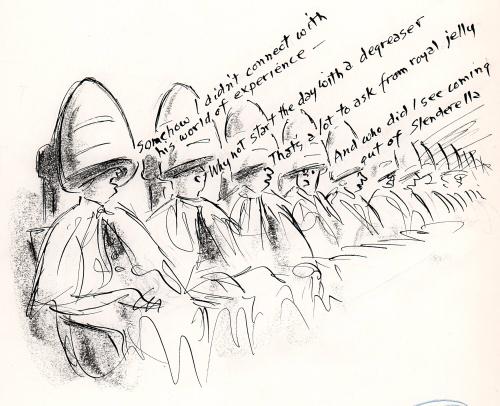 Somehow I didn't connect with
his world of experience —
Why not start the day with a degreaser
That's a lot to ask from royal jelly
And who did I see coming
out of Slenderella